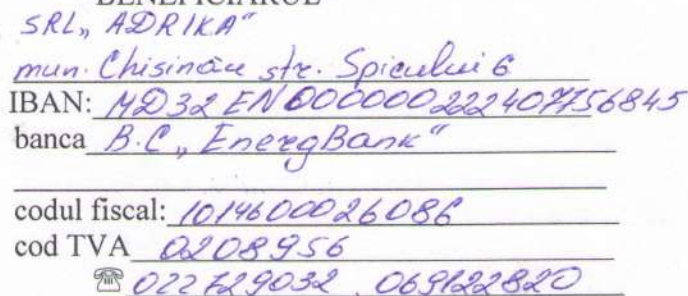 BENEFICIARUL
SRL „ADRIKA"
mun. Chisinău str. Spicului 6
IBAN: MD32 EN 000000222407756845
banca B.C „EnergBank"
codul fiscal: 1014600026086
cod TVA 0208956
☎ 022729032, 069122820